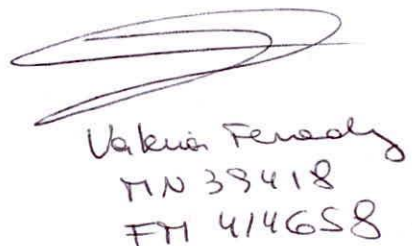 Valeria Ferrady
MN 39418
FM 414658